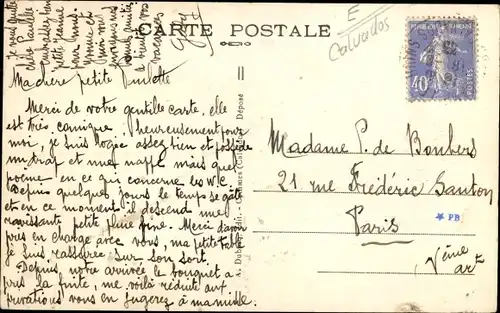 CARTE POSTALE
E
Calvados
40
POSTES
Ma chère petite Paulette
Merci de votre gentille carte, elle
est très comique, heureusement pour
moi, je suis logée assez bien et possède
un drap et une nappe mais quel
poème en ce qui concerne les W.C.
Depuis quelques jours le temps se gâte
et en ce moment il descend une
ravissante petite pluie fine. Merci d'avoir
pris en charge avec vous, ma petite table
je suis rassurée sur son sort.
Depuis notre arrivée le bouquet a
pris la fuite, me voilà réduite aux
privations vous en jugerez à ma mine
je vous quitte
chère Paulette
embrassez bien
petite Jeanne
pour nous.
à bientôt vos
vacances
Madame P. de Bonbers
21 rue Frédéric Sauton
Paris
Vème
arrt
* PB
A. Dubosq, édit., (Calv.) Déposé